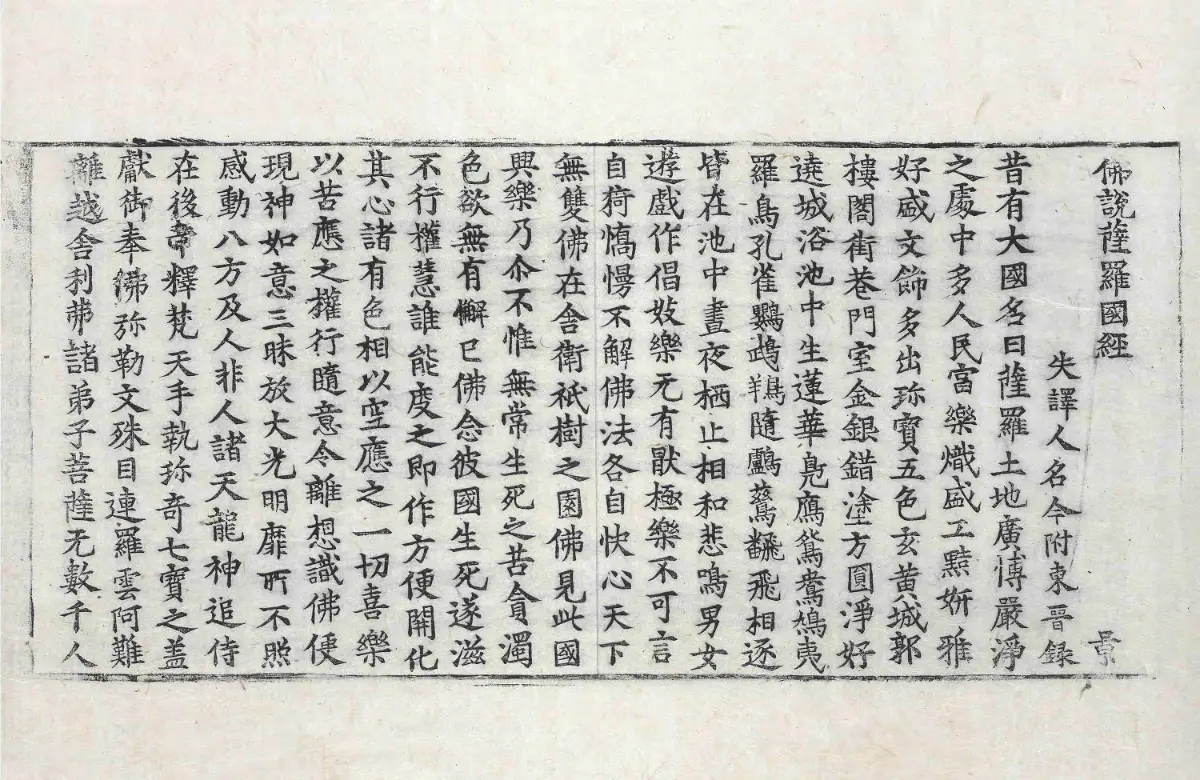 佛說薩羅國經 景
失譯人名今附東晉錄
昔有大國名曰薩羅土地廣博嚴淨
之處中多人民富樂熾盛工黠妍雅
好盛文飾多出珎寶五色玄黃城郭
樓閣街巷門室金銀錯塗方圓淨好
遶城浴池中生蓮華鳧鴈鴛鴦鳩夷
羅鳥孔雀鸚鵡鶴隨鸝鶿飜飛相逐
皆在池中晝夜栖止相和悲鳴男女
遊戲作倡妓樂无有猒極樂不可言
自猗憍慢不解佛法各自快心天下
無雙佛在舍衛祇樹之園佛見此國
興樂乃尒不惟無常生死之苦貪濁
色欲無有懈已佛念彼國生死遂滋
不行權慧誰能度之即作方便開化
其心諸有色相以空應之一切喜樂
以苦應之權行隨意令離想識佛便
現神如意三昧放大光明靡所不照
感動八方及人非人諸天龍神追侍
在後帝釋梵天手執珎奇七寶之盖
獻御奉佛弥勒文殊目連羅雲阿難
離越舍利弗諸弟子菩薩无數千人